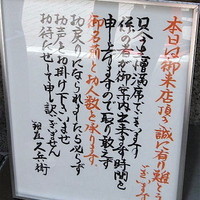 本日は御来店頂き誠に有り難とう
ございます
只今満席でございます
係の者が御案内出来ます時間を
申し上げますので取り敢えず
御名前と お人数を承ります
お戻りになられましたら必らず
お声をお掛け下さいませ
お待たせして申し訳ございません